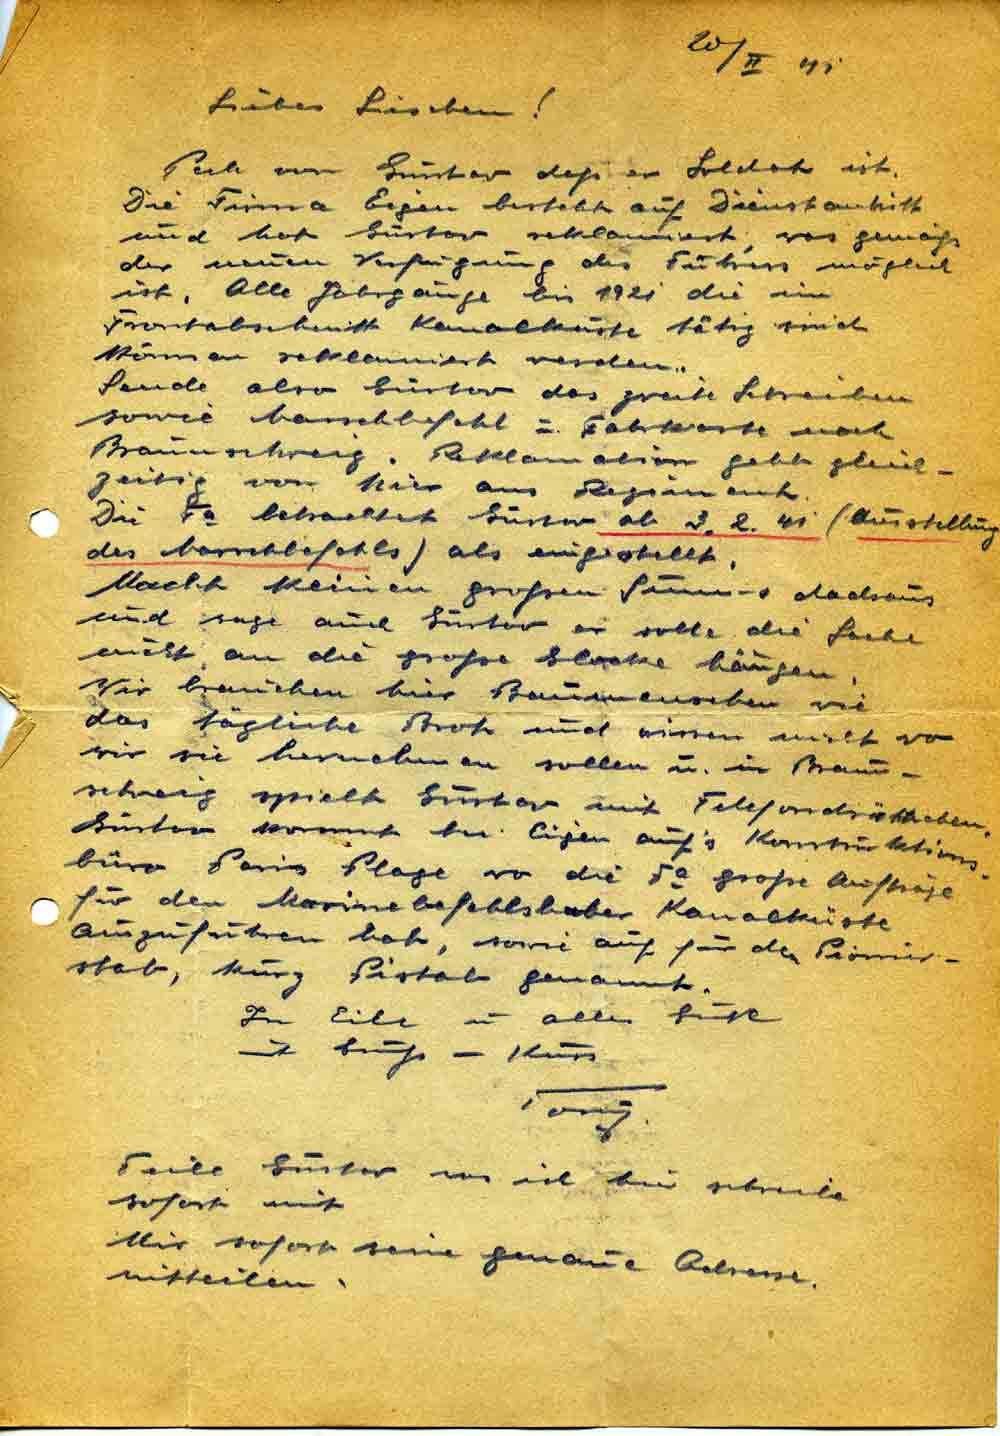 20/II 41
Liebes Lieschen!
Pech von Gustav daß er Soldat ist.
Die Firma Eigen besteht auf Dienstantritt
und hat Gustav reklamiert, was gemäß
der neuen Verfügung des Führers möglich
ist. Alle Jahrgänge bis 1921 die im
Frontabschnitt Kanalküste tätig sind
können reklamiert werden.
Sende also Gustav das zweite Schreiben
sowie Marschbefehl u. Fahrkarte nach
Braunschweig. Reklamation geht gleich-
zeitig von hier ans Regiment.
Die Fa betrachtet Gustav ab 3.2.41 (Ausstellung
des Marschbefehls) als eingestellt.
Macht keinen großen daraus
und sage auch Gustav er solle die Sache
nicht an die große Glocke hängen.
Wir brauchen hier Baumenschen wie
das tägliche Brot und wissen nicht wo
wir sie hernehmen sollen u. in Braun-
schweig spielt Gustav mit Telefondrähtchen.
Gustav kommt bei Eigen auf's Konstruktions-
büro Paris Plage wo die Fa große Aufträge
für den Marinebefehlshaber Kanalküste
auszuführen hat, sowie auf für den Pionier-
stab, kurz Pistab genannt.
In Eile u alles Gute
mit Gruß - Kuss
Tony.
Teile Gustav was ich hier schreibe
sofort mit
Mir sofort seine genaue Adresse
mitteilen.